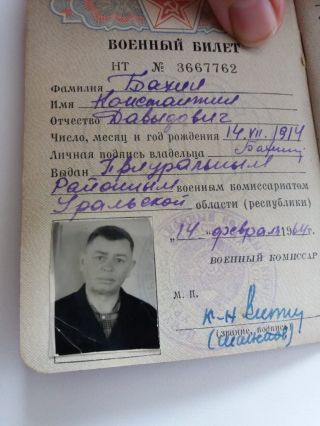 ВОЕННЫЙ БИЛЕТ
НТ № 3667762
Фамилия Бахии
Имя Константин
Отчество Давыдович
Число, месяц и год рождения 14.VII.1914
Личная подпись владельца
Выдан Приуральным
Районным военным комиссариатом
Уральской области (республики)
"14" февраля 1964 г.
ВОЕННЫЙ КОМИССАР
М. П.
п-к
(звание, подпись)